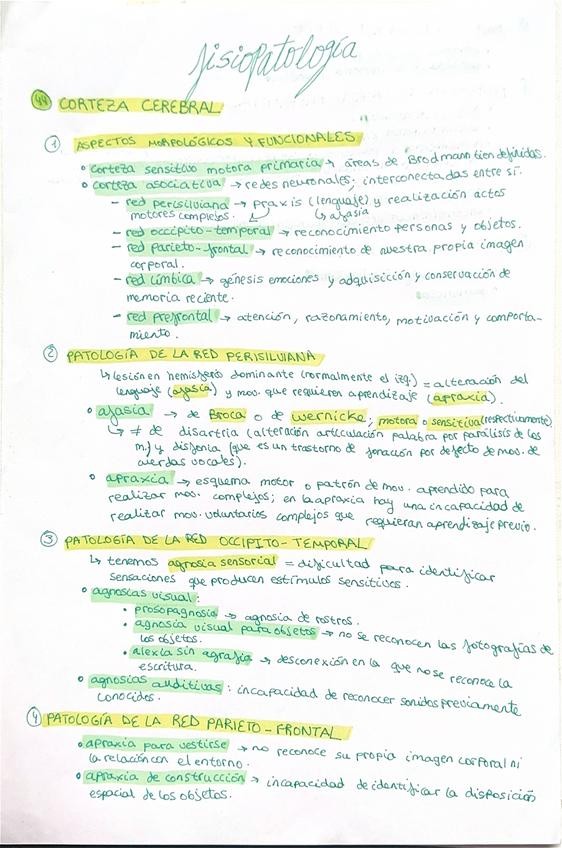 fisiopatología
44 CORTEZA CEREBRAL
1 ASPECTOS MORFOLÓGICOS Y FUNCIONALES
• corteza sensitivo motora primaria → áreas de Brodmann tien definidas.
• corteza asociativa → redes neuronales; interconectadas entre sí.
- red perisilviana → praxis (lenguaje) y realización actos
motores complejos. ↳ afasia
- red occipito-temporal → reconocimiento personas y objetos.
- red parieto-frontal → reconocimiento de nuestra propia imagen
corporal.
- red límbica → génesis emociones y adquisición y conservación de
memoria reciente.
- red prefrontal → atención, razonamiento, motivación y comporta-
miento.
2 PATOLOGÍA DE LA RED PERISILVIANA
↳ lesión en hemisferio dominante (normalmente el izq.) = alteración del
lenguaje (afasia) y mov. que requieren aprendizaje (apraxia).
• afasia → de Broca o de Wernicke; motora o sensitiva (respectivamente)
↳ ≠ de disartria (alteración articulación palabra por parálisis de los
m.) y disfonía (que es un trastorno de fonación por defecto de mov. de
cuerdas vocales).
• apraxia → esquema motor o patrón de mov. aprendido para
realizar mov. complejos; en la apraxia hay una incapacidad de
realizar mov. voluntarios complejos que requieran aprendizaje previo.
3 PATOLOGÍA DE LA RED OCCIPITO-TEMPORAL
↳ tenemos agnosia sensorial = dificultad para identificar
sensaciones que producen estímulos sensitivos.
• agnosias visual:
• prosopagnosia → agnosia de rostros.
• agnosia visual para objetos → no se reconocen las fotografías de
los objetos.
• alexia sin agrafia → desconexión en la que no se reconoce la
escritura.
• agnosias auditivas: incapacidad de reconocer sonidos previamente
conocidos.
4 PATOLOGÍA DE LA RED PARIETO-FRONTAL
• apraxia para vestirse → no reconoce su propia imagen corporal ni
la relación con el entorno.
• apraxia de construcción → incapacidad de identificar la disposición
espacial de los objetos.